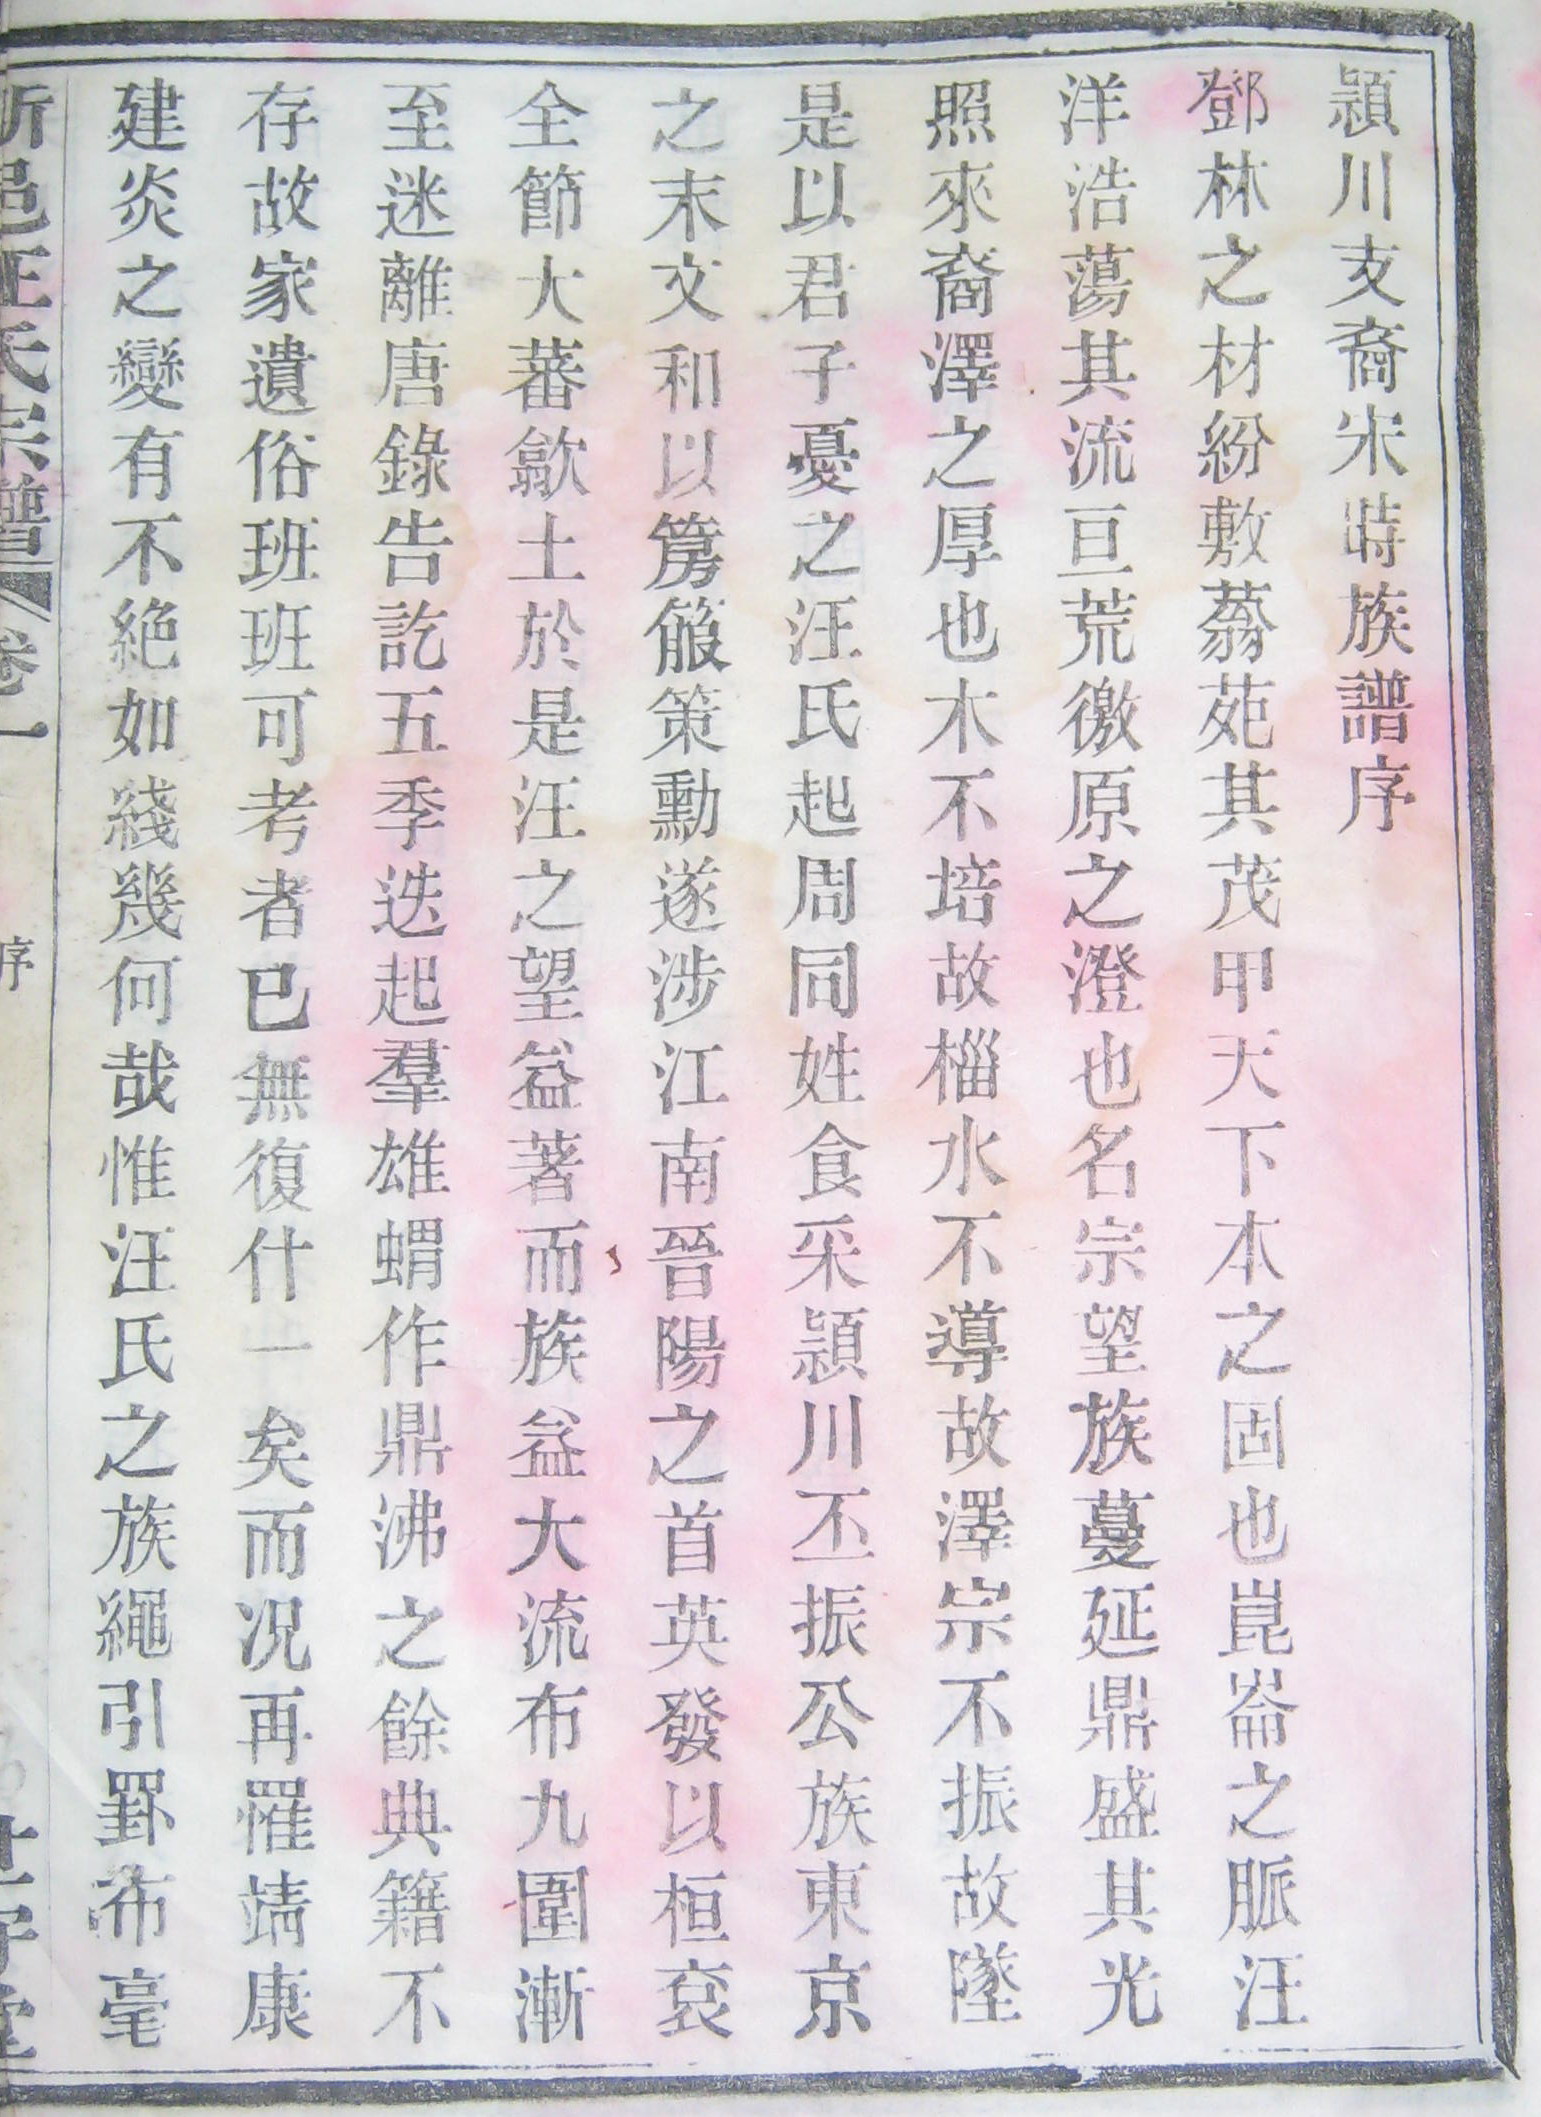 頴川支裔宋時族譜序
鄧林之材紛敷蓊苑其茂甲天下本之固也崑崙之脈汪
洋浩蕩其流亘荒徼原之澄也名宗望族蔓延鼎盛其光
照來裔澤之厚也木不培故椔水不導故澤宗不振故墜
是以君子憂之汪氏起周同姓食采頴川丕振公族東京
之末文和以篣箙策勳遂涉江南晉陽之首英發以桓袞
全節大蕃歙土於是汪之望益著而族益大流布九圍漸
至迷離唐錄告訖五季迭起羣雄蝟作鼎沸之餘典籍不
存故家遺俗班班可考者已無復什一矣而況再罹靖康
建炎之變有不絶如綫幾何哉惟汪氏之族繩引罫布毫
邑汪氏宗譜 卷一 序